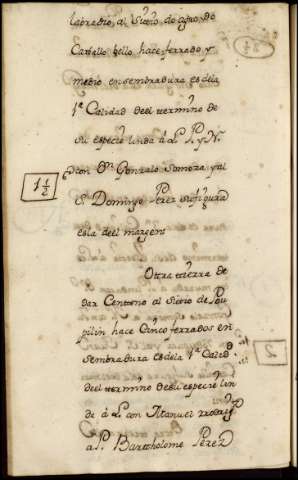 labradío, al Sitio do agro, do
Carballo bello hace ferrado y
medio en sembradura es dela
1ª Calidad deel termino de
su especie linda á L. P. y N.
con Dn Gonzalo Somoza y al
S. Domingo Perez su figura
es la deel margen
1 1/2
Otra tierra de
dar Centeno al Sitio de
pilin hace Cinco ferrados en
sembradura es dela 1ª Calidd
deel termino desu especie lin
de á L. con
a P. Barttholome Perez
2